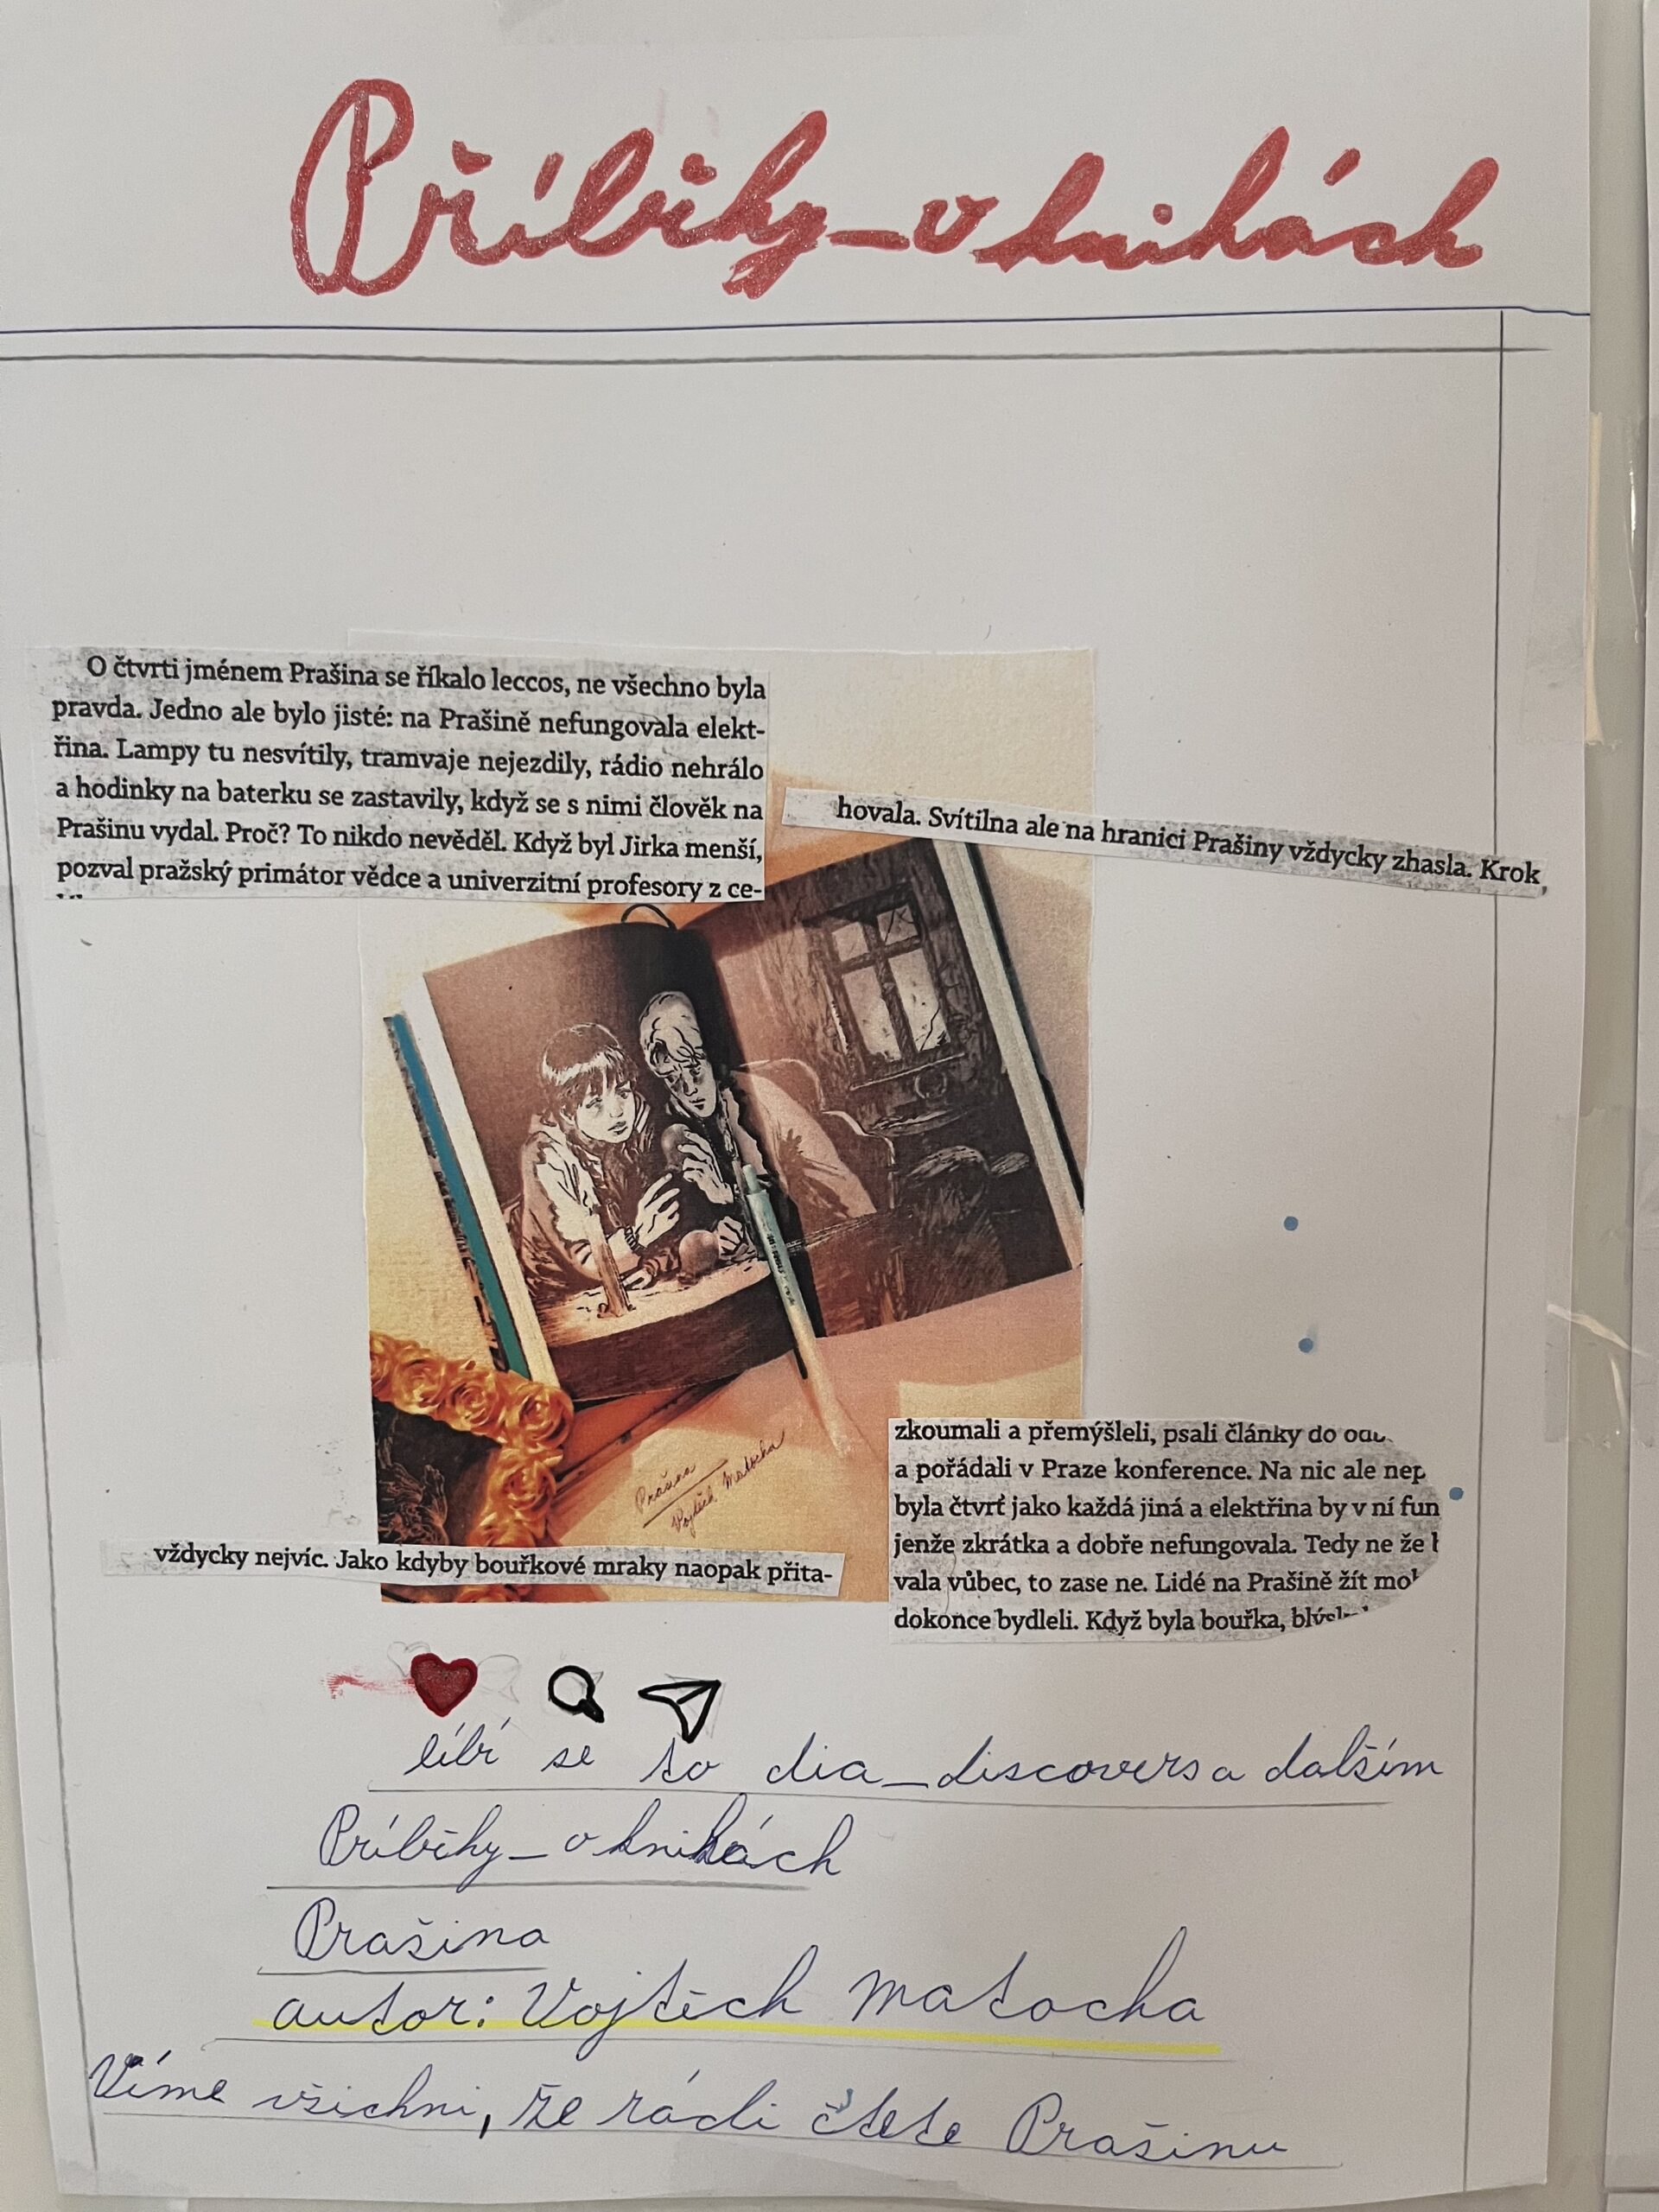 Příběhy_o knihách
O čtvrti jménem Prašina se říkalo leccos, ne všechno byla
pravda. Jedno ale bylo jisté: na Prašině nefungovala elekt-
řina. Lampy tu nesvítily, tramvaje nejezdily, rádio nehrálo
a hodinky na baterku se zastavily, když se s nimi člověk na
Prašinu vydal. Proč? To nikdo nevěděl. Když byl Jirka menší,
pozval pražský primátor vědce a univerzitní profesory z ce-
hovala. Svítilna ale na hranici Prašiny vždycky zhasla. Krok
Prašina
Vojtěch Matocha
zkoumali a přemýšleli, psali články do
a pořádali v Praze konference. Na nic ale nep
byla čtvrť jako každá jiná a elektřina by v ní fun
jenže zkrátka a dobře nefungovala. Tedy ne že
vala vůbec, to zase ne. Lidé na Prašině žít
dokonce bydleli. Když byla bouřka,
vždycky nejvíc. Jako kdyby bouřkové mraky naopak přita-
líbí se to dia_discovers a dalším
Príběhy_o knihách
Prašina
autor: Vojtěch Matocha
Víme všichni, že rádi čtete Prašinu